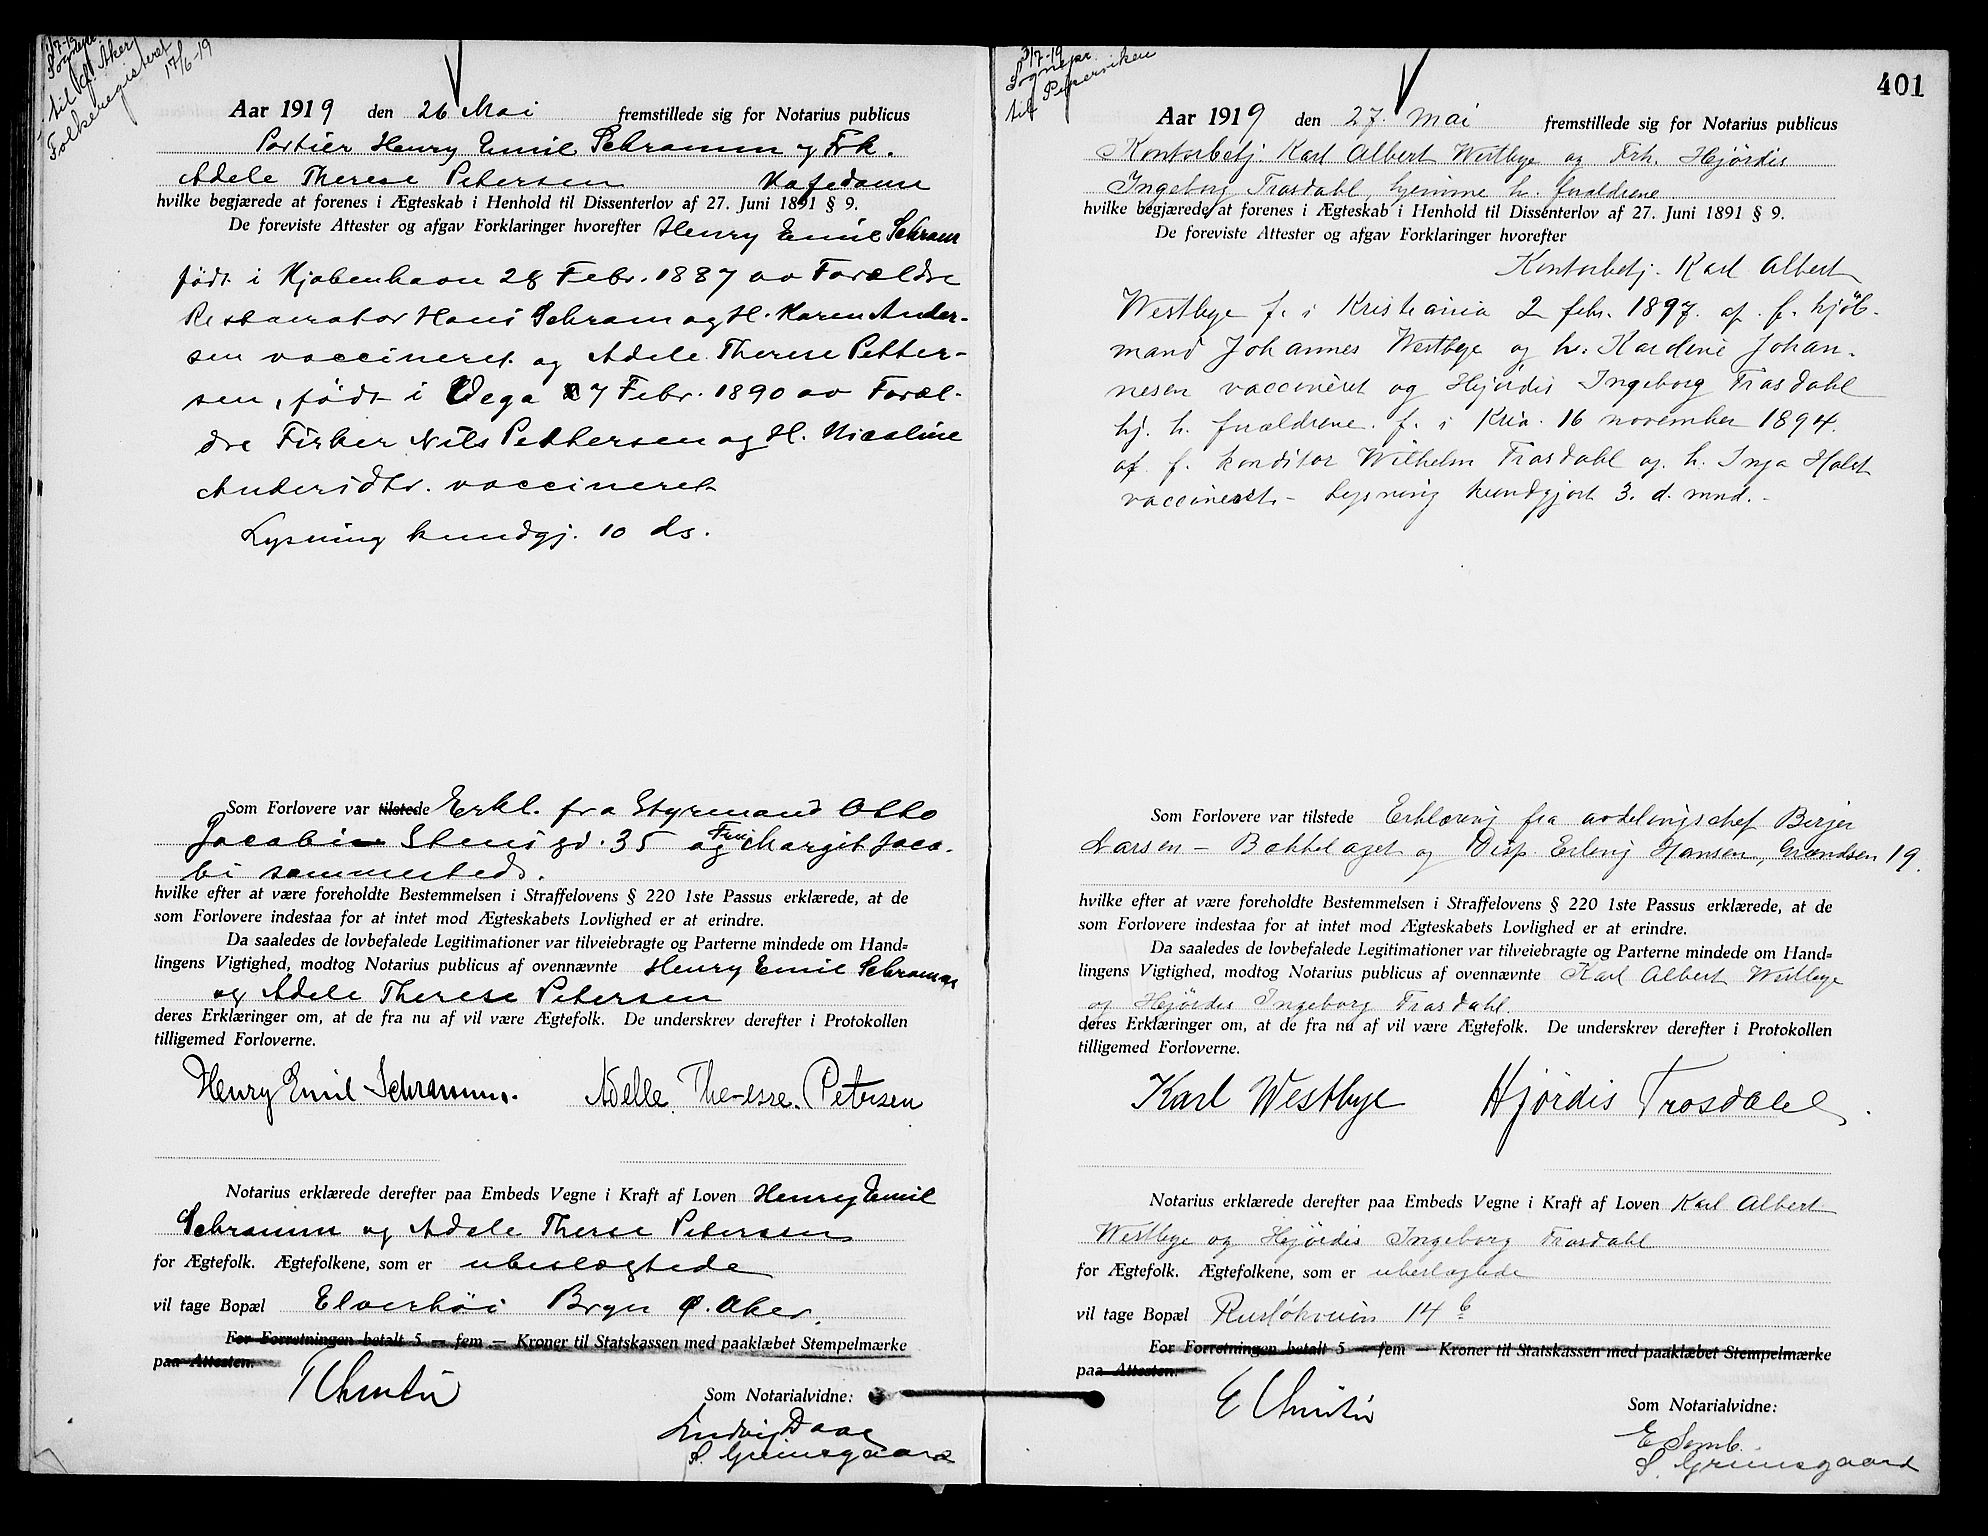 Sognepr.
til Aker
Folkeregisteret
17/6-19
Aar 1919 den 26 Mai fremstillede sig for Notarius publicus
Portier Henry Emil Schramm og Frk.
Adele Therese Petersen Kafedame
hvilke begjærede at forenes i Ægteskab i Henhold til Dissenterlov af 27. Juni 1891 § 9.
De foreviste Attester og afgav Forklaringer hvorefter Henry Emil Schram
født i Kjøbenhavn 28 Febr. 1887 av Forældre
Restauratør Hans Schram og H. Karen Ander-
sen vaccineret og Adele Therese Petter-
sen, født i Vega 7 Febr. 1890 av Foræl-
dre Fisker Nils Pettersen og H. Nicoline
Antersdtr. vaccineret
Lysning kundgj. 10 ds.
Som Forlovere var tilstede Erkl. fra Styrmand Otto
Jacobi Stensgd. 35 og Fru Margit Jaco-
bi sammesteds.
hvilke efter at være foreholdte Bestemmelsen i Straffelovens § 220 1ste Passus erklærede, at de
som Forlovere indestaa for at intet mod Ægteskabets Lovlighed er at erindre.
Da saaledes de lovbefalede Legitimationer var tilveiebragte og Parterne mindede om Hand-
lingens Vigtighed, modtog Notarius publicus af ovennævnte Henry Emil Schramm
og Adele Therese Petersen
deres Erklæringer om, at de fra nu af vil være Ægtefolk. De underskrev derefter i Protokollen
tilligemed Forloverne.
Henry Emil Schramm. Adelle The-esse. Petersen
Notarius erklærede derefter paa Embeds Vegne i Kraft af Loven Henry Emil
Schramm og Adele Therese Petersen
for Ægtefolk. Ægtefolkene, som er ubeslægtede
vil tage Bopæl Elverhöi Bryn Ø. Aker.
For Forretningen betalt 5 — fem — Kroner til Statskassen med paaklæbet Stempelmærke
paa Attesten.
Som Notarialvidne:
Ludvig Daae
S. Grimsgaard
3/7-19
Sognepr.
til Peterskirken
401
Aar 1919 den 27. Mai fremstillede sig for Notarius publicus
Kontorbetj. Karl Albert Westbye og Frk. Hjördis
Ingeborg Trosdahl, hjemme h. forældrene
hvilke begjærede at forenes i Ægteskab i Henhold til Dissenterlov af 27. Juni 1891 § 9.
De foreviste Attester og afgav Forklaringer hvorefter
Kontorbetj. Karl Albert
Westbye f. i Kristiania 2 febr. 1897. af f. kjøb-
mand Johannes Westbye og h. Kardine Johan-
nesen vaccineret og Hjördis Ingeborg Trosdahl
hj. h. forældrene. f. i Kria. 16 november 1894.
af f. konditor Wilhelm Trosdahl og h. Inga Holst
vaccineret. - Lysning kundgjort 3. d. mnd. -
Som Forlovere var tilstede Erklæring fra avdelingschef Birger
Larsen - Bækkelaget og Disp. Erling Hansen, Grændsen 19.
hvilke efter at være foreholdte Bestemmelsen i Straffelovens § 220 1ste Passus erklærede, at de
som Forlovere indestaa for at intet mod Ægteskabets Lovlighed er at erindre.
Da saaledes de lovbefalede Legitimationer var tilveiebragte og Parterne mindede om Hand-
lingens Vigtighed, modtog Notarius publicus af ovennævnte Karl Albert Westbye
og Hjördis Ingeborg Trosdahl.
deres Erklæringer om, at de fra nu af vil være Ægtefolk. De underskrev derefter i Protokollen
tilligemed Forloverne.
Karl Westbye Hjördis Trosdahl.
Notarius erklærede derefter paa Embeds Vegne i Kraft af Loven Karl Albert
Westbye og Hjördis Ingeborg Trosdahl
for Ægtefolk. Ægtefolkene, som er ubeslægtede
vil tage Bopæl Ruslökveien 14 b
For Forretningen betalt 5 — fem — Kroner til Statskassen med paaklæbet Stempelmærke
paa Attesten.
Som Notarialvidne:
E Semb.
S. Grimsgaard